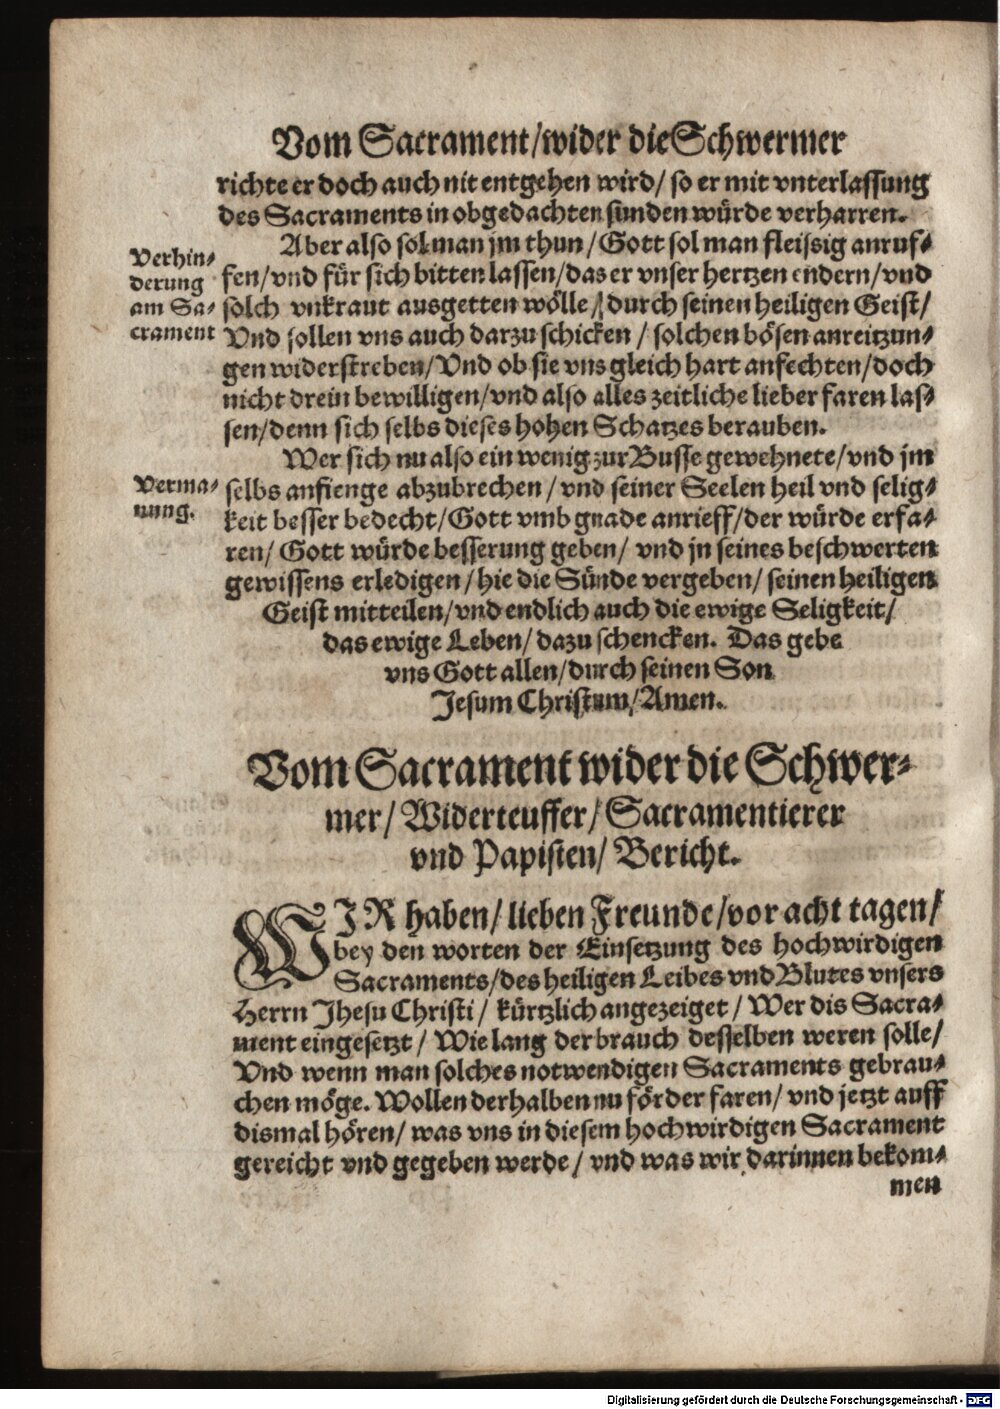 Vom Sacrament/wider die Schwermer
richte er doch auch nit entgehen wird/ so er mit vnterlassung
des Sacraments in obgedachten sunden würde verharren.
Aber also sol man jm thun/ Gott sol man fleissig anruf-
Verhin-
derung
am Sa-
crament
fen/vnd für sich bitten lassen/das er vnser hertzen endern/vnd
solch vnkraut ausgetten wölle/ durch seinen heiligen Geist/
Vnd sollen vns auch darzu schicken/ solchen bösen anreitzun-
gen widerstreben/Vnd ob sie vns gleich hart anfechten/doch
nicht drein bewilligen/vnd also alles zeitliche lieber faren las-
sen/denn sich selbs dieses hohen Schatzes berauben.
Wer sich nu also ein wenig zur Busse gewehnete/vnd jm
Verma-
nung.
selbs anfienge abzubrechen/ vnd seiner Seelen heil vnd selig-
keit besser bedecht/Gott vmb gnade anrieff/der würde erfa-
ren/ Gott würde besserung geben/ vnd jn seines beschwerten
gewissens erledigen/hie die Sünde vergeben/ seinen heiligen
Geist mitteilen/vnd endlich auch die ewige Seligkeit/
das ewige Leben/ dazu schencken. Das gebe
vns Gott allen/durch seinen Son
Jesum Christum/Amen.
Vom Sacrament wider die Schwer-
mer/ Widerteuffer/ Sacramentierer
vnd Papisten/ Bericht.
WJR haben/ lieben Freunde/vor acht tagen/
bey den worten der Einsetzung des hochwirdigen
Sacraments/des heiligen Leibes vnd Blutes vnsers
Herrn Jhesu Christi/ kürtzlich angezeiget/ Wer dis Sacra-
ment eingesetzt/ Wie lang der brauch desselben weren solle/
Vnd wenn man solches notwendigen Sacraments gebrau-
chen möge. Wollen derhalben nu förder faren/ vnd jetzt auff
dismal hören/ was vns in diesem hochwirdigen Sacrament
gereicht vnd gegeben werde/ vnd was wir darinnen bekom-
men
Digitalisierung gefördert durch die Deutsche Forschungsgemeinschaft - DFG